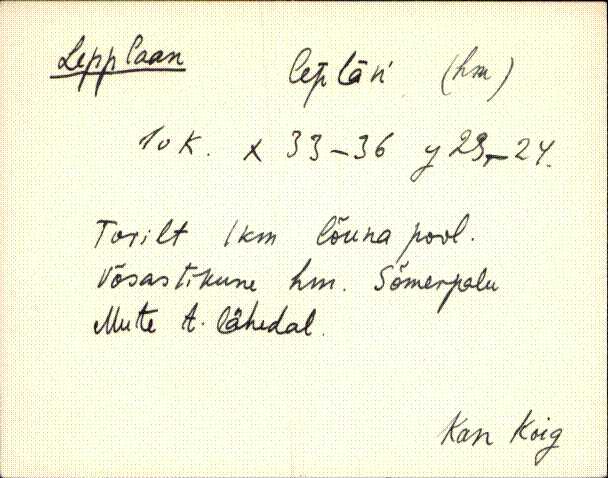 Lepplaan lep̄lāń (hm)
10 K. x 33-36 y 23-24.
Torilt 1km lõuna pool.
Võsastikune hm. Sõmerpalu
Mutte t. lähedal.
Kan Koig